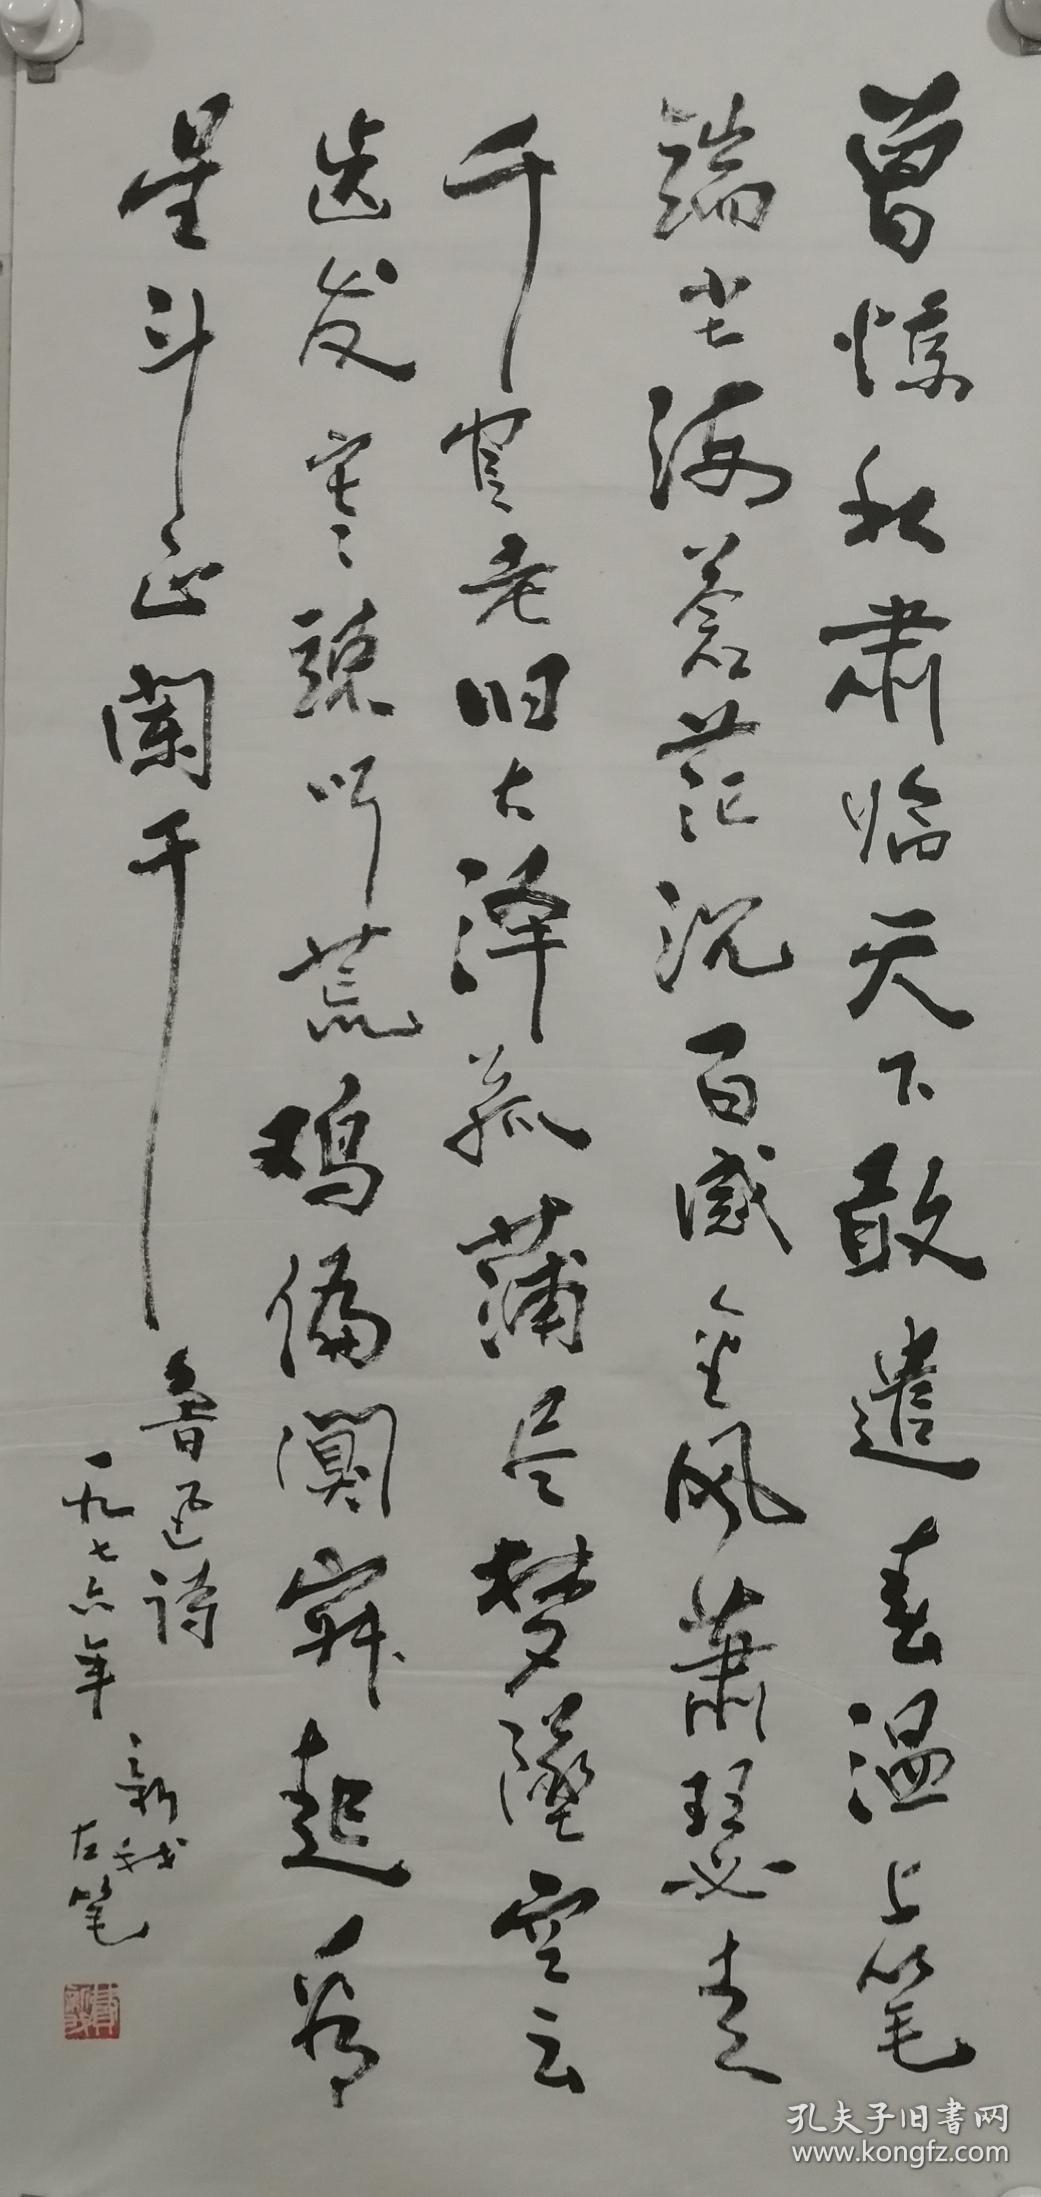 曾惊秋肃临天下敢遣春温上笔
端尘海苍茫沉百感金风萧瑟走
千官老归大泽菰蒲尽梦墜空云
齿发寒竦听荒鸡偏阒寂起看
星斗正阑干
鲁迅诗
一九七六年
新我
左笔
孔夫子旧書网
www.kongfz.com